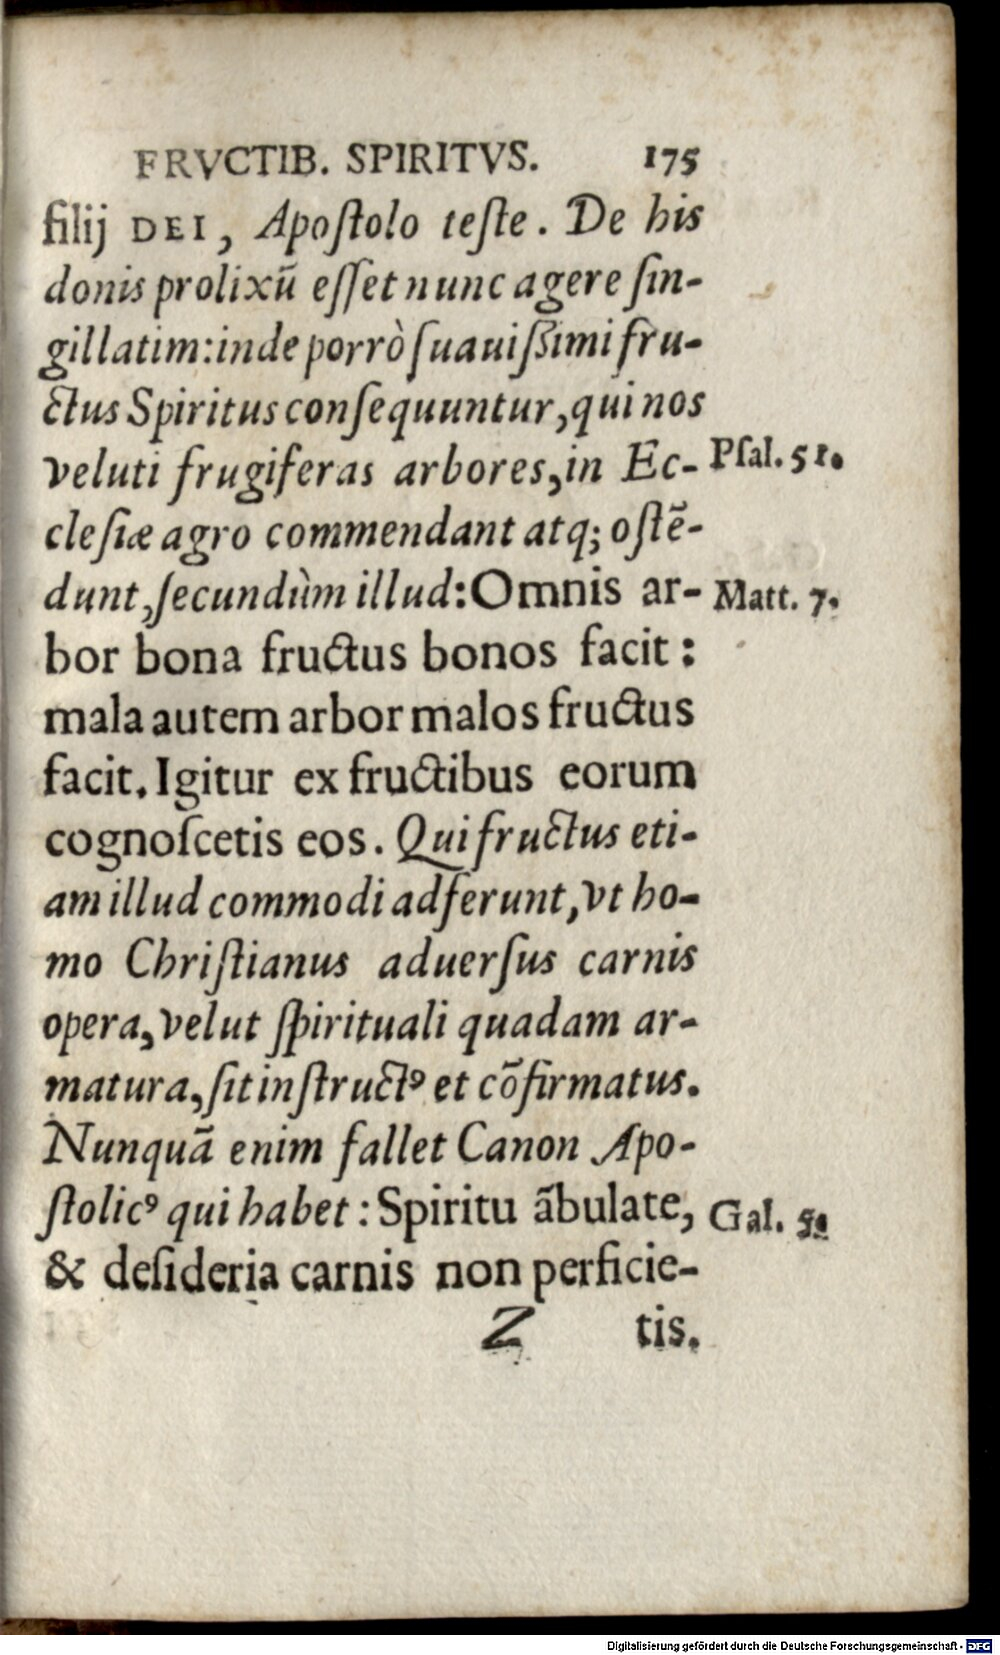 FRVCTIB. SPIRITVS. 175
filij DEI, Apoſtolo teſte. De his
donis prolixū eſſet nunc agere ſin-
gillatim: inde porrò ſuauißimi fru-
ctus Spiritus conſequuntur, qui nos
veluti frugiferas arbores, in Ec- Pſal. 51.
cleſiæ agro commendant atq; oſtē-
dunt, ſecundùm illud: Omnis ar- Matt. 7.
bor bona fructus bonos facit:
mala autem arbor malos fructus
facit. Igitur ex fructibus eorum
cognoſcetis eos. Qui fructus eti-
am illud commodi adferunt, vt ho-
mo Chriſtianus aduerſus carnis
opera, velut ſpirituali quadam ar-
matura, ſit inſtructꝰ et cōfirmatus.
Nunquā enim fallet Canon Apo-
ſtolicꝰ qui habet: Spiritu ābulate, Gal. 5.
& deſideria carnis non perficie-
Z tis.
Digitalisierung gefördert durch die Deutsche Forschungsgemeinschaft - DFG